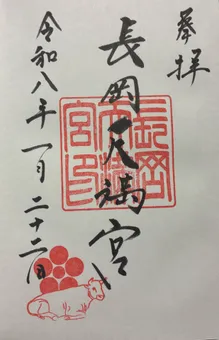 奉拝
長岡天満宮
長岡天満宮印
令和八年一月二十二日